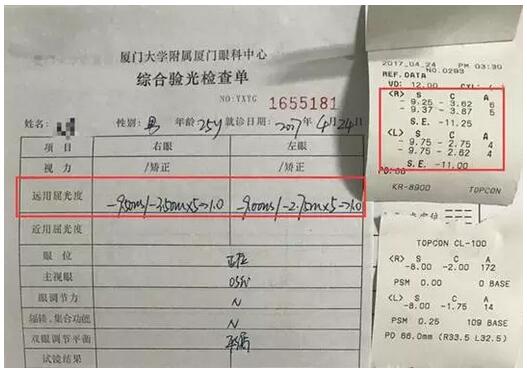 厦门大学附属厦门眼科中心
综合验光检查单
NO:YXYG 1655181
姓名: 性别: 男 年龄 25y 就诊日期: 2017年4月24日
项目 右眼 左眼
视力 /矫正 /矫正
远用屈光度 -9.50DS/-3.50DC×5→1.0 -9.00DS/-2.75DC×5→1.0
近用屈光度
眼位 正位
主视眼
眼调节力 N
辐辏、集合功能 N
双眼调节平衡 平衡
试镜结果
2017_04_24 PM 03:30
NO.0293
REF.DATA
VD: 12.00
<R> S C A
- 9.25 - 3.62 6
- 9.37 - 3.87 5
S.E. -11.25
<L> S C A
- 9.75 - 2.75 4
- 9.75 - 2.62 4
S.E. -11.00
KR-8900 TOPCON
TOPCON CL-100
<R> S C A
-8.00 -2.00 172
PSM 0.00 0 BASE
<L> S C A
-8.00 -1.75 14
PSM 0.25 109 BASE
PD 66.0mm (R33.5 L32.5)